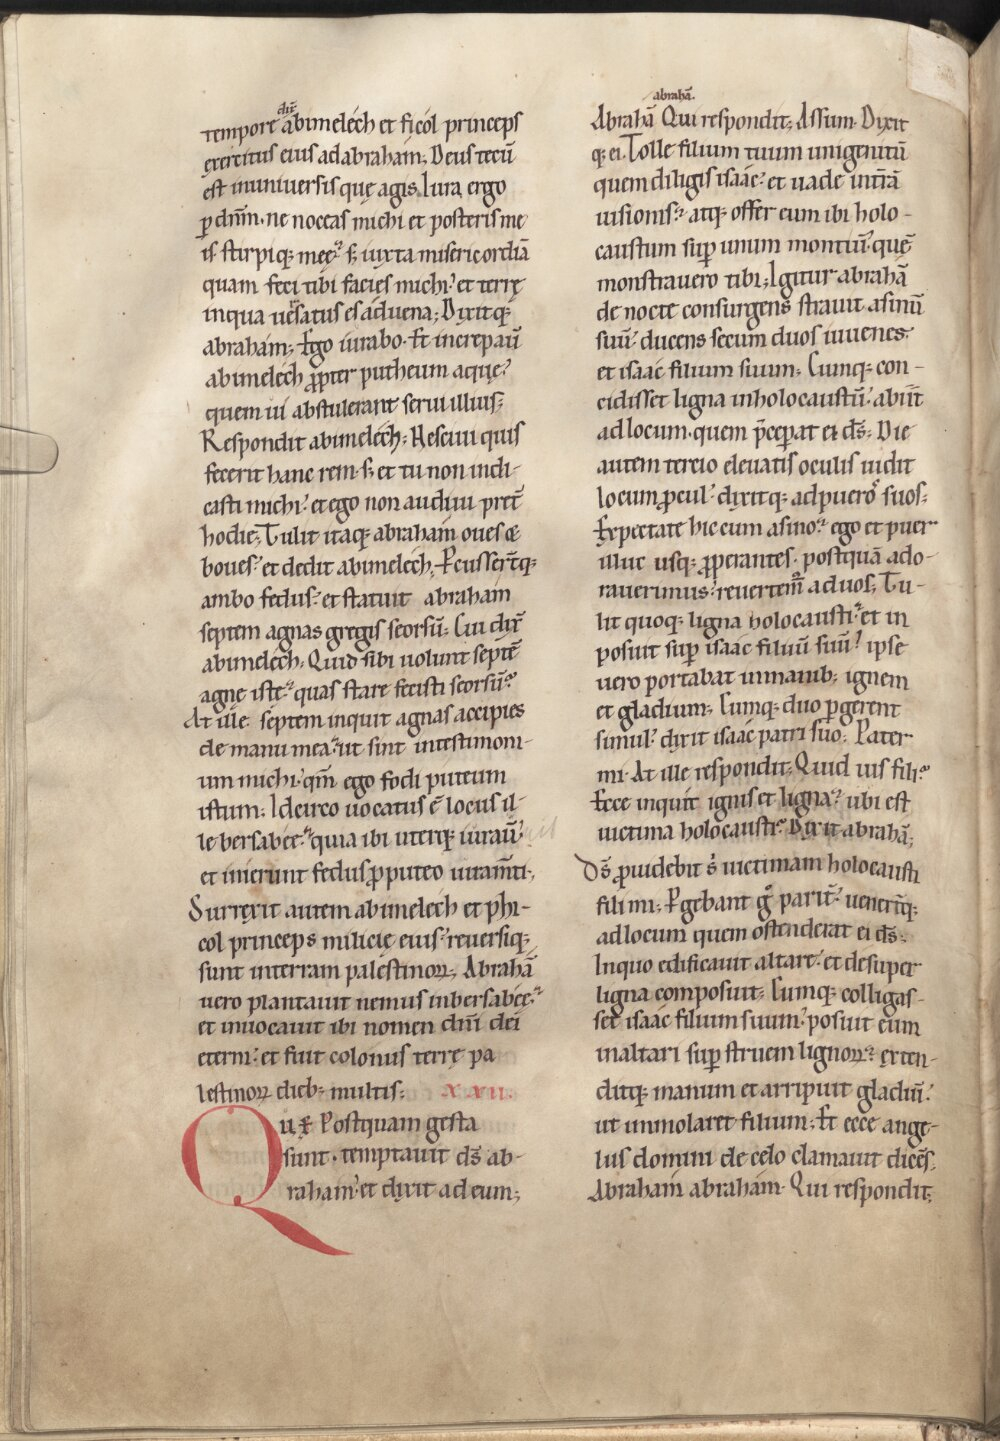 dix̅
tempore abimelech et ficol princeps
exercitus eius ad abraham; Deus tecū
est in universis quę agis. Iura ergo
p̱ dnm̄. ne noceas michi et posteris me
is. stirpiq; meę? s; iuxta misericordiā
quam feci tibi facies michi. et terrę
in qua uersatus es aduena; Dixitq;
abraham; Ego iurabo. Et increpau̅
abimelech ꝓpter putheum aquę.
quem ui abstulerant serui illius;
Respondit abimelech; Nesciui quis
fecerit hanc rem. s; et tu non indi-
casti michi. et ego non audiui pret̄
hodie; Tulit itaq; abraham oues &
boues. et dedit abimelech. P̱cusser̄tq;
ambo fedus. et statuit abraham
septem agnas gregis seorsū; Cui dix̄
abimelech; Quid sibi uolunt septē
agnę istę? quas stare fecisti seorsū?
At ille. septem inquit agnas accipies
de manu mea. ut sint in testimoni-
um michi. qm̄ ego fodi puteum
istum; Idcirco uocatus ē locus il-
le bersabeę. quia ibi uterq; iurau̅.
et inierunt fedus ꝓ puteo iuram̄ti;
Surrexit autem abimelech et phi-
col princeps milicię eius. reuersiq;
sunt in terram palestinoꝝ; Abrahā
uero plantauit nemus in bersabeę.
et inuocauit ibi nomen dn̄i dei
eterni. et fuit colonus terrę pa
lestinoꝝ dieb; multis; XXII.
Quę Postquam gesta
sunt. temptauit ds̄ ab-
raham. et dixit ad eum;
abrahā.
Abrahā Qui respondit; Assum. Dixit
q; ei. Tolle filium tuum unigenitū
quem diligis isaac. et uade in tr̄ā
uisionis. atq; offer eum ibi holo-
caustum sup̱ unum montiū. quē
monstrauero tibi; Igitur abrahā
de nocte consurgens strauit asinū
suū. ducens secum duos iuuenes.
et isaac filium suum; Cumq; con-
cidisset ligna in holocaustū. abiit̄
ad locum. quem p̄cep̱at ei ds̄; Die
autem tercio eleuatis oculis uidit
locum ꝓcul. dixitq; ad pueros suos;
Expectate hic cum asino. ego et puer
illuc usq; ꝓperantes. postquā ado-
rauerimus. reuertem̄ ad uos; Tu-
lit quoq; ligna holocausti. et in
posuit sup̱ isaac filiuū suū. ipse
uero portabat in manib; ignem
et gladium; Cumq; duo p̱gerent
simul. dixit isaac patri suo; Pater
mi. At ille respondit; Quid uis fili?
Ecce inquit ignis et ligna. ubi est
uictima holocausti? Dixit abrahā;
Ds̄ ꝓuidebit s̊ uictimam holocausti
fili mi; P̱gebant gͦ parit̄. uener̄tq;
ad locum quem ostenderat ei ds̄;
In quo edificauit altare. et desuper
ligna composuit; Cumq; colligas-
set isaac filium suum. posuit eum
in altari sup̱ struem lignoꝝ. exten-
ditq; manum et arripuit gladiū.
ut immolaret filium; Et ecce ange-
lus domini de celo clamauit dicēs.
Abraham abraham. Qui respondit;